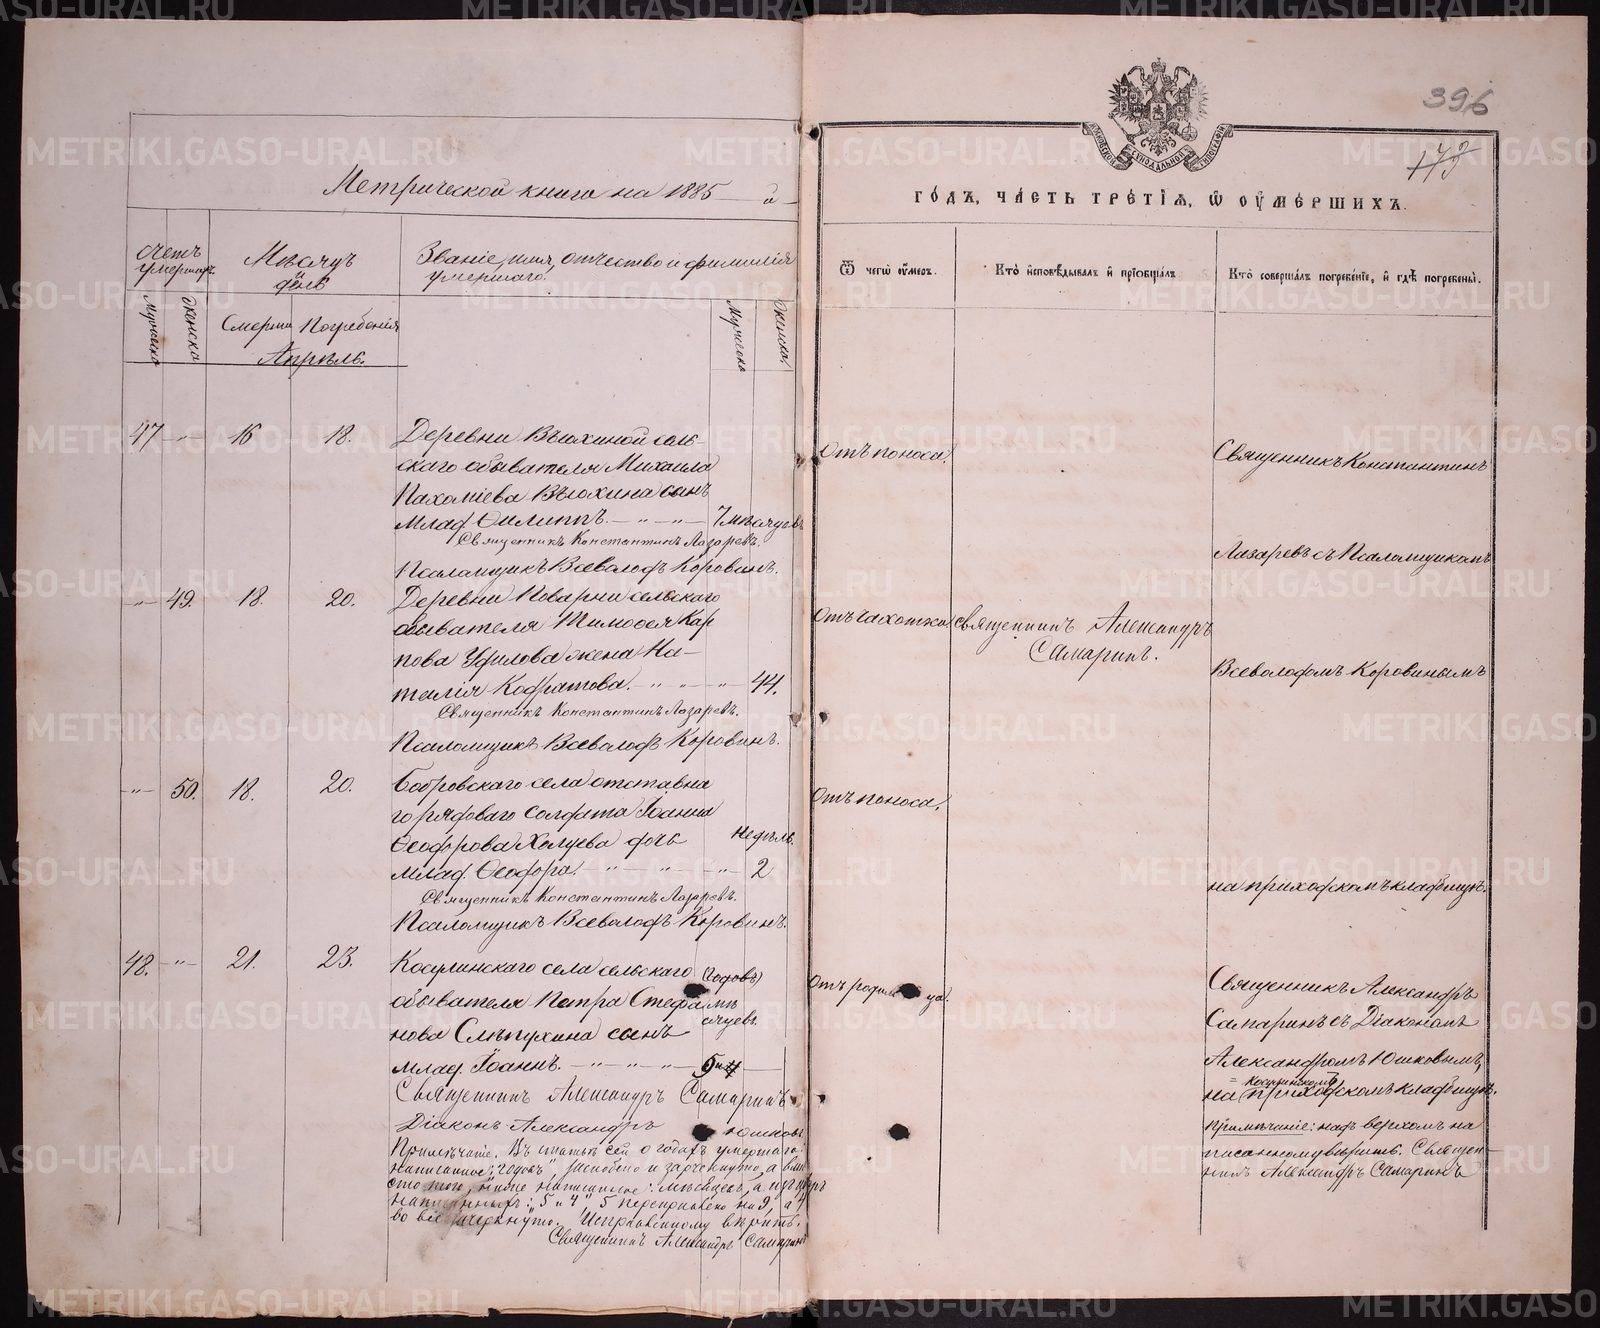 396
173
Метрической книги на 1885 — й
ГО́ДЪ, ЧА́СТЬ ТРЕ́ТІѦ, Ѿ ОУ҆МЕ́РШИХЪ.
Счетъ умершихъ
Мѣсяцъ и день
Званіе, имя, отчество и фамилія
умершаго.
Ѿ чегѡ оу҆меръ.
Кто̀ и҆сповѣ́дывалъ и҆ прїѡбща́лъ
Кто̀ соверша́лъ погребе́нїе, и҆ гдѣ̀ погребены̀.
Мужска
Женска
Смерти
Погребенія
Апрѣль.
Мужеска
Женска
47 — " — 16 18. Деревни Вьюхиной сель-
скаго обывателя Михаила
Пахоміева Вьюхина сынъ
млад. Филиппъ. — " — " — 7 мѣсяцевъ
Священникъ Константинъ Лазаревъ.
Псаломщикъ Всеволодъ Коровинъ.
Отъ поноса.
Священникъ Константинъ
Лазаревъ съ Псаломщикомъ
— " — 49. 18. 20. Деревни Поварни сельскаго
обывателя Тимоѳея Кар
пова Уфилова жена На-
талія Кодратова. — " — " — " — 44.
Священникъ Константинъ Лазаревъ.
Псаломщикъ Всеволодъ Коровинъ.
Отъ чахотки
Священникъ Александръ
Самаринъ.
Всеволодомъ Коровинымъ
— " — 50. 18. 20. Бобровскаго села отставна
го рядоваго солдата Іоанна
Ѳеодорова Холуева дочь недѣль.
млад. Ѳеодора. " — " — " — " — 2
Священникъ Константинъ Лазаревъ.
Псаломщикъ Всеволодъ Коровинъ.
Отъ поноса.
на приходскомъ кладбищѣ.
48. — " — 21. 23. Косулинскаго села сельскаго (годовъ)
обывателя Петра Стефа мѣ
нова Слѣпухина сынъ сяцевъ.
млад. Іоаннъ. — " — " — " — " — 5 и 4
Священникъ Александръ Самаринъ
Діаконъ Александръ Юшковъ
Отъ родим ца.
Священникъ Александръ
Самаринъ съ Діакономъ
Александромъ Юшковымъ,
= косулинскомъ
на приходскомъ кладбищѣ.
Примѣчаніе. Въ статьѣ сей о годахъ умершаго
написанное: "годовъ", заскоблено и зачеркнуто, а вмѣ
сто того, ниже написанное: мѣсяцевъ, а изъ цыфръ
написанныхъ: "5 и 4", 5 переправлено на 9, а 4
во все зачеркнуто. Исправленному вѣрить.
Священникъ Александръ Самаринъ
Примѣчаніе: надъ верхомъ на
писанному вѣрить. Священ-
никъ Александръ Самаринъ